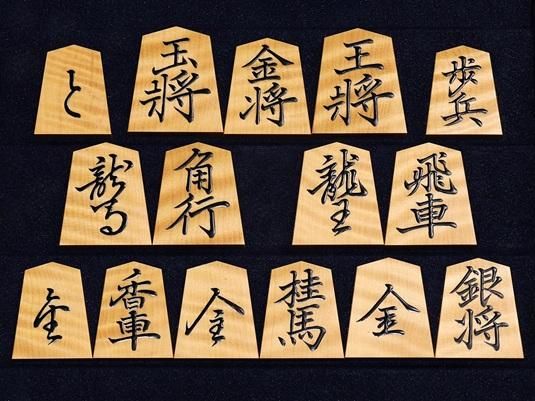 と 玉將 金将 王將 歩兵
龍馬 角行 龍王 飛車
全 香車 全 桂馬 全 銀将